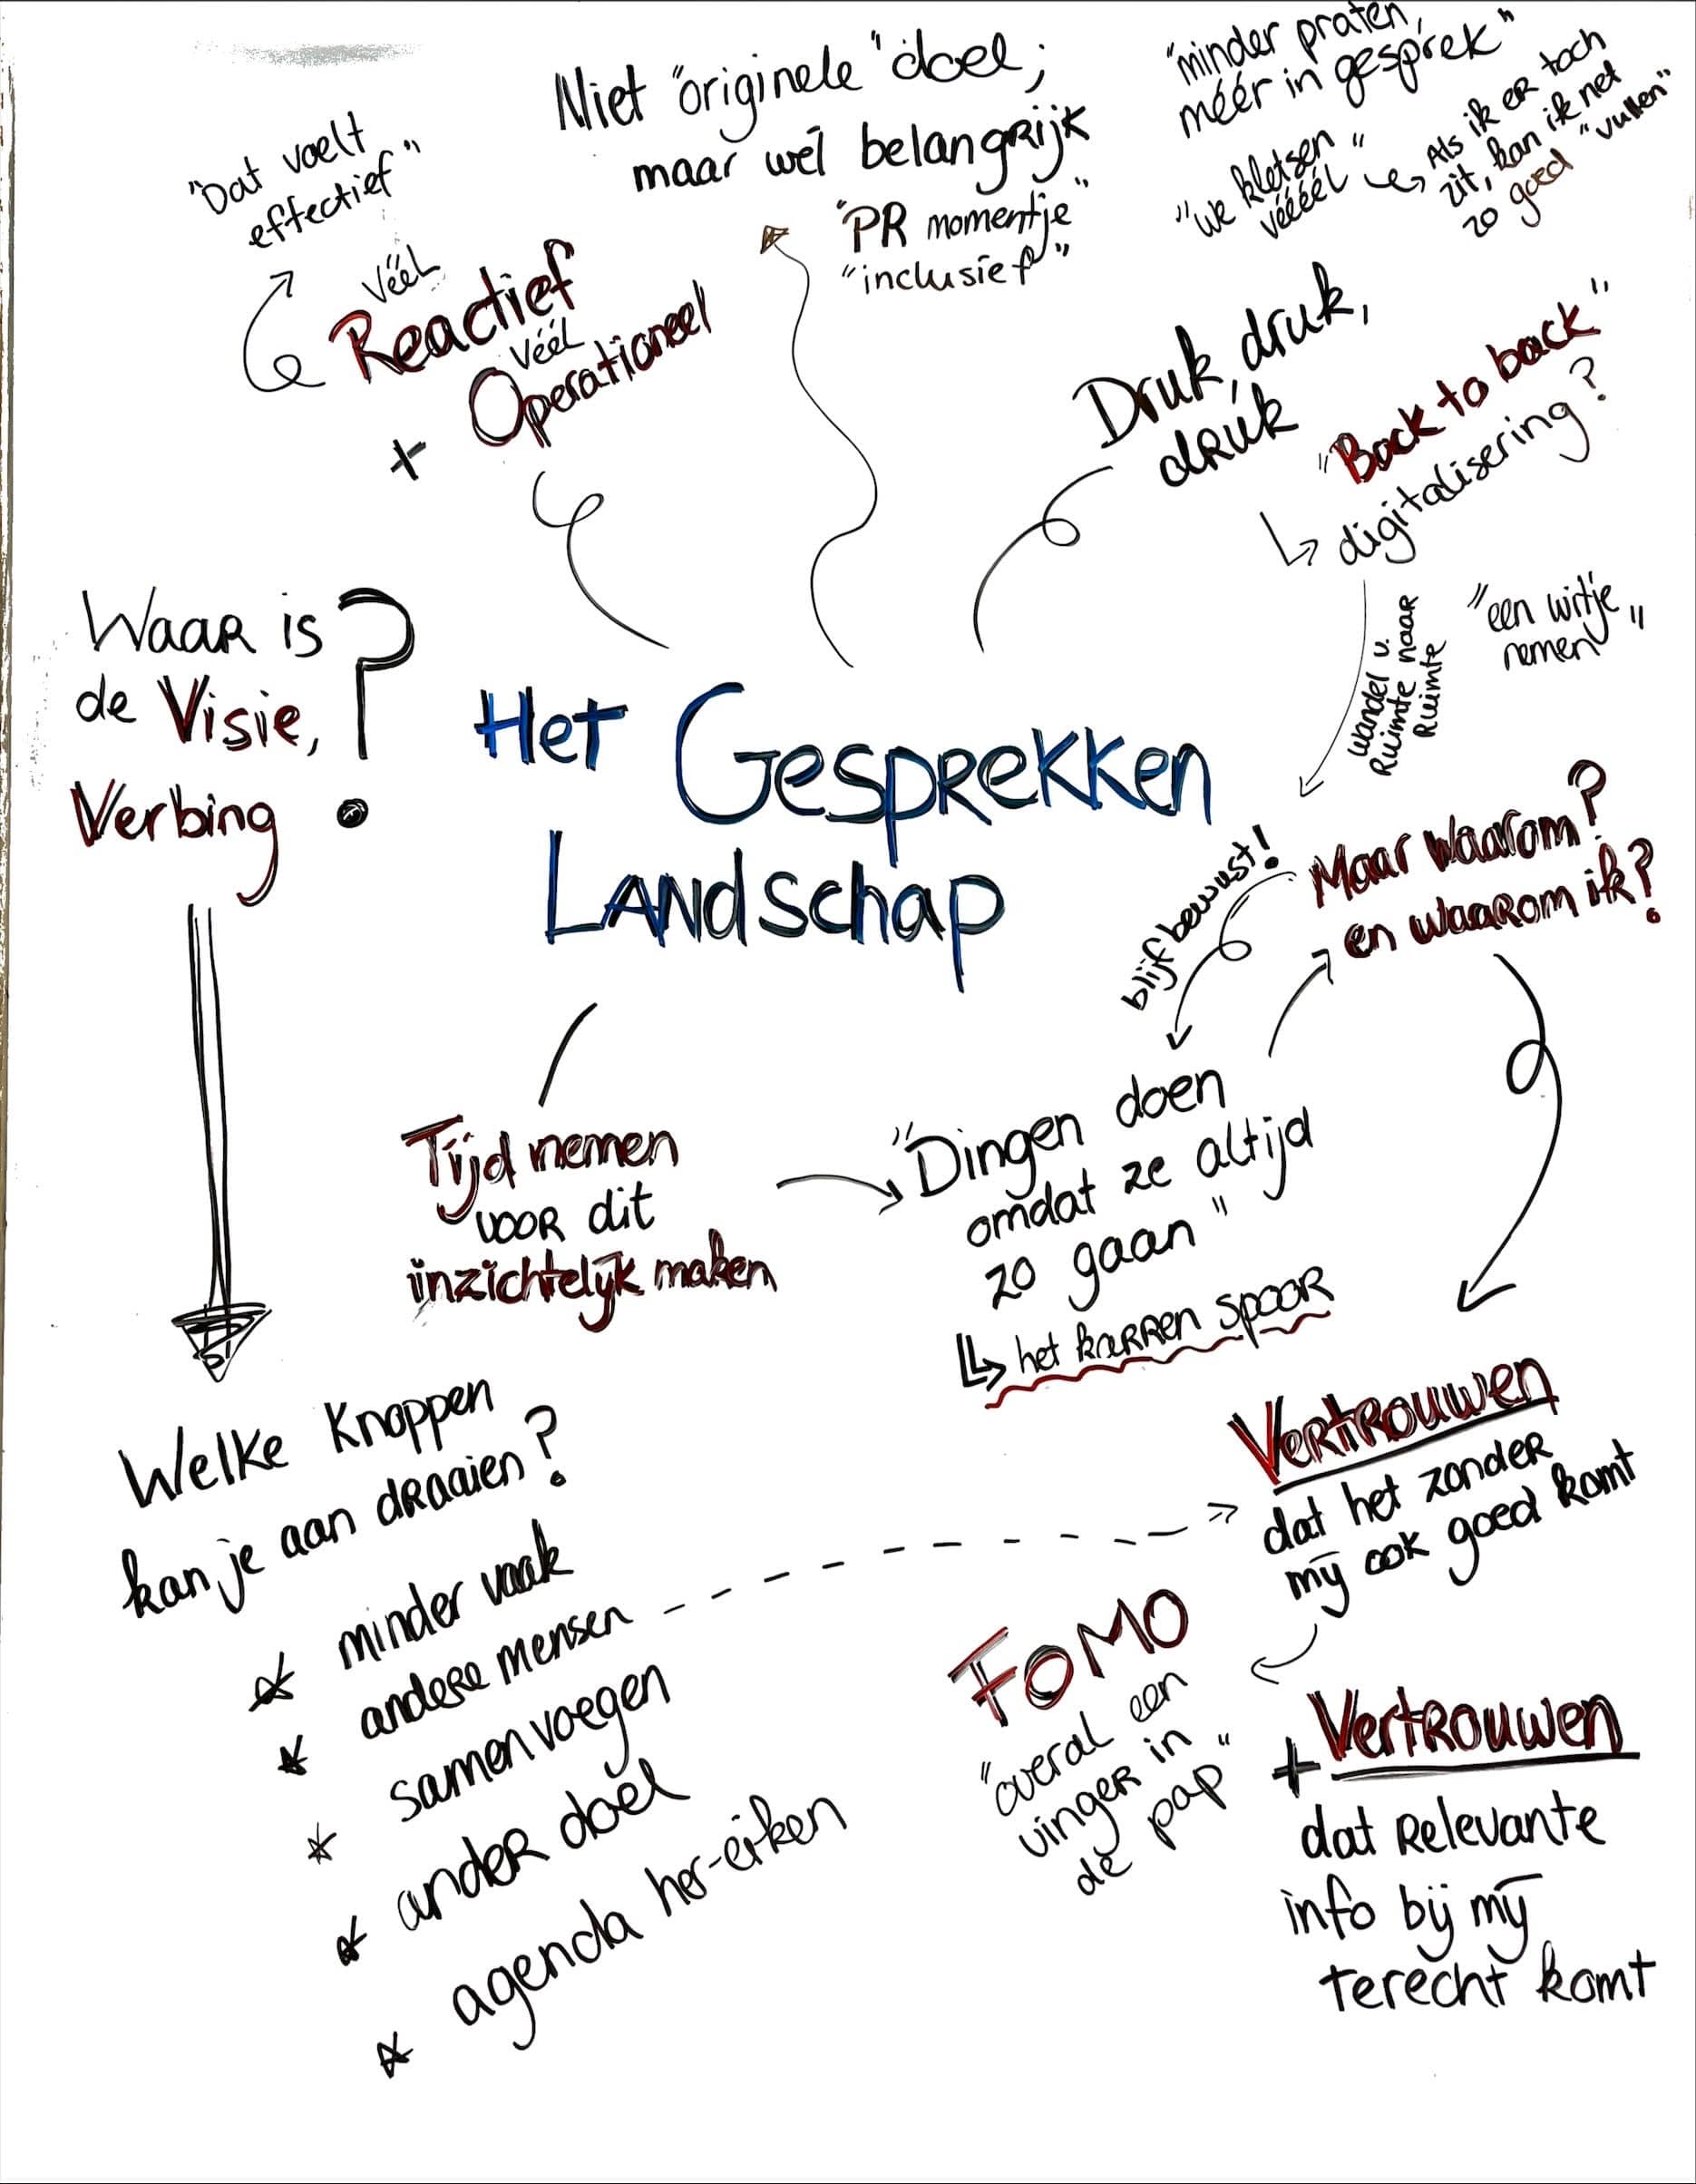 Niet "originele" doel;
maar wél belangrijk
"PR momentje"
"inclusief"
"minder praten,
méér in gesprek"
"we kletsen
véééél"
Als ik er toch
zit, kan ik net
zo goed "vullen"
"Dat voelt
effectief"
véél
Reactief
véél
+ Operationeel
Druk, druk,
druk
"Back to back"
digitalisering?
wandel v.
Ruimte naar
Ruimte
"een witje
nemen"
Waar is
de Visie,
Verbing ?
Het Gesprekken
Landschap
Maar waarom?
en waarom ik?
blijf bewust!
Tijd nemen
voor dit
inzichtelijk maken
"Dingen doen
omdat ze altijd
zo gaan"
het karren spoor
Welke Knoppen
kan je aan draaien?
minder vaak
andere mensen
samenvoegen
ander doel
agenda her-eiken
Vertrouwen
dat het zonder
mij ook goed komt
FOMO
"overal een
vinger in
de pap"
+ Vertrouwen
dat relevante
info bij mij
terecht komt